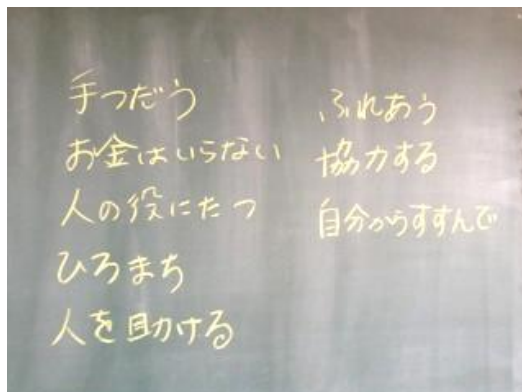 手つだう
お金はいらない
人の役にたつ
ひろまち
人を助ける
ふれあう
協力する
自分からすすんで